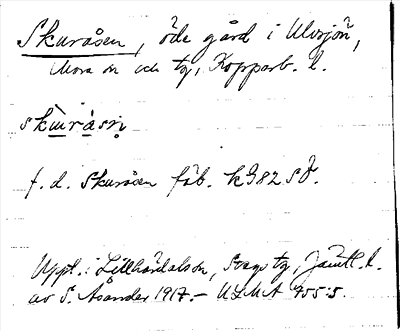 Skuråsen, öde gård i Ulvsjön,
Mora sn och tg, Kopparb. l.
skùràsṇ
f. d. Skuråsen fäb. kG82SV.
Uppt. i Lillhärdalssn, Svegs tg, Jämtl. l.
av S. Åsander 1917. – ULMA 755:5.